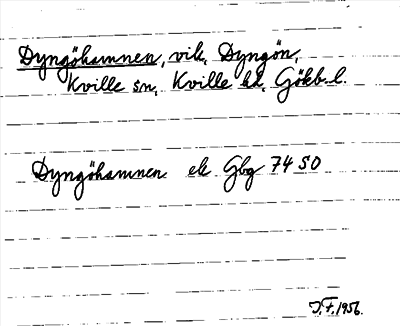 Dyngöhamnen, vik, Dyngön,
Kville sn, Kville hd, Gökb. l.
Dyngöhamnen ek Gbg 74 SO
J.F. 1956.